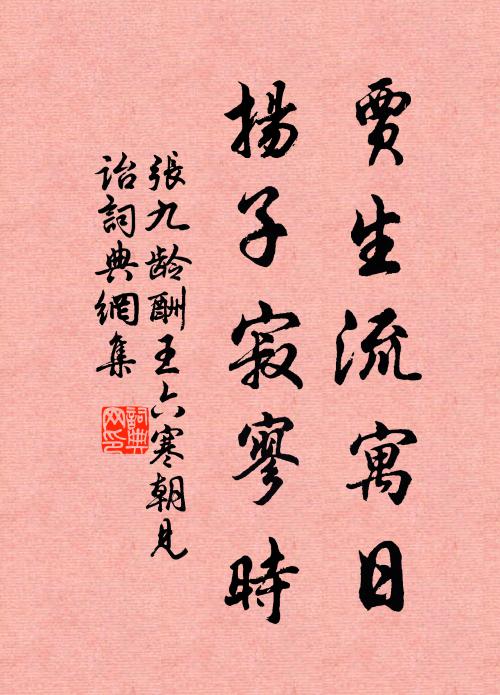 賈生流寓日
揚子寂寥時
張九龄酬王六寒朝見
詒詞典網集
詞典
网印